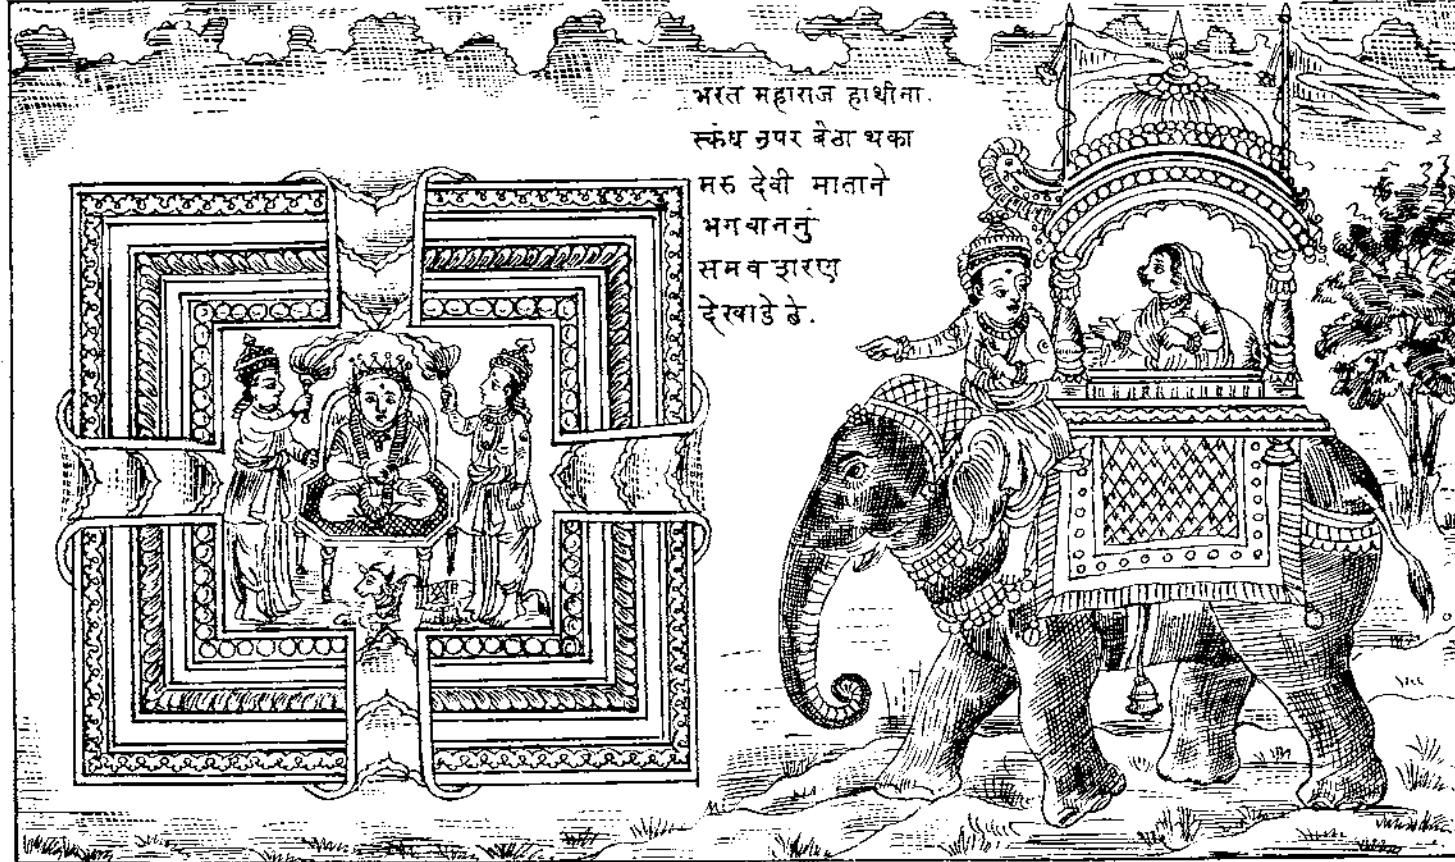 भरत महाराज हाथीना.
स्कंध उपर बेठा थका
मरु देवी माताने
भगवाननुं
समवशरण
देखाडे छे.